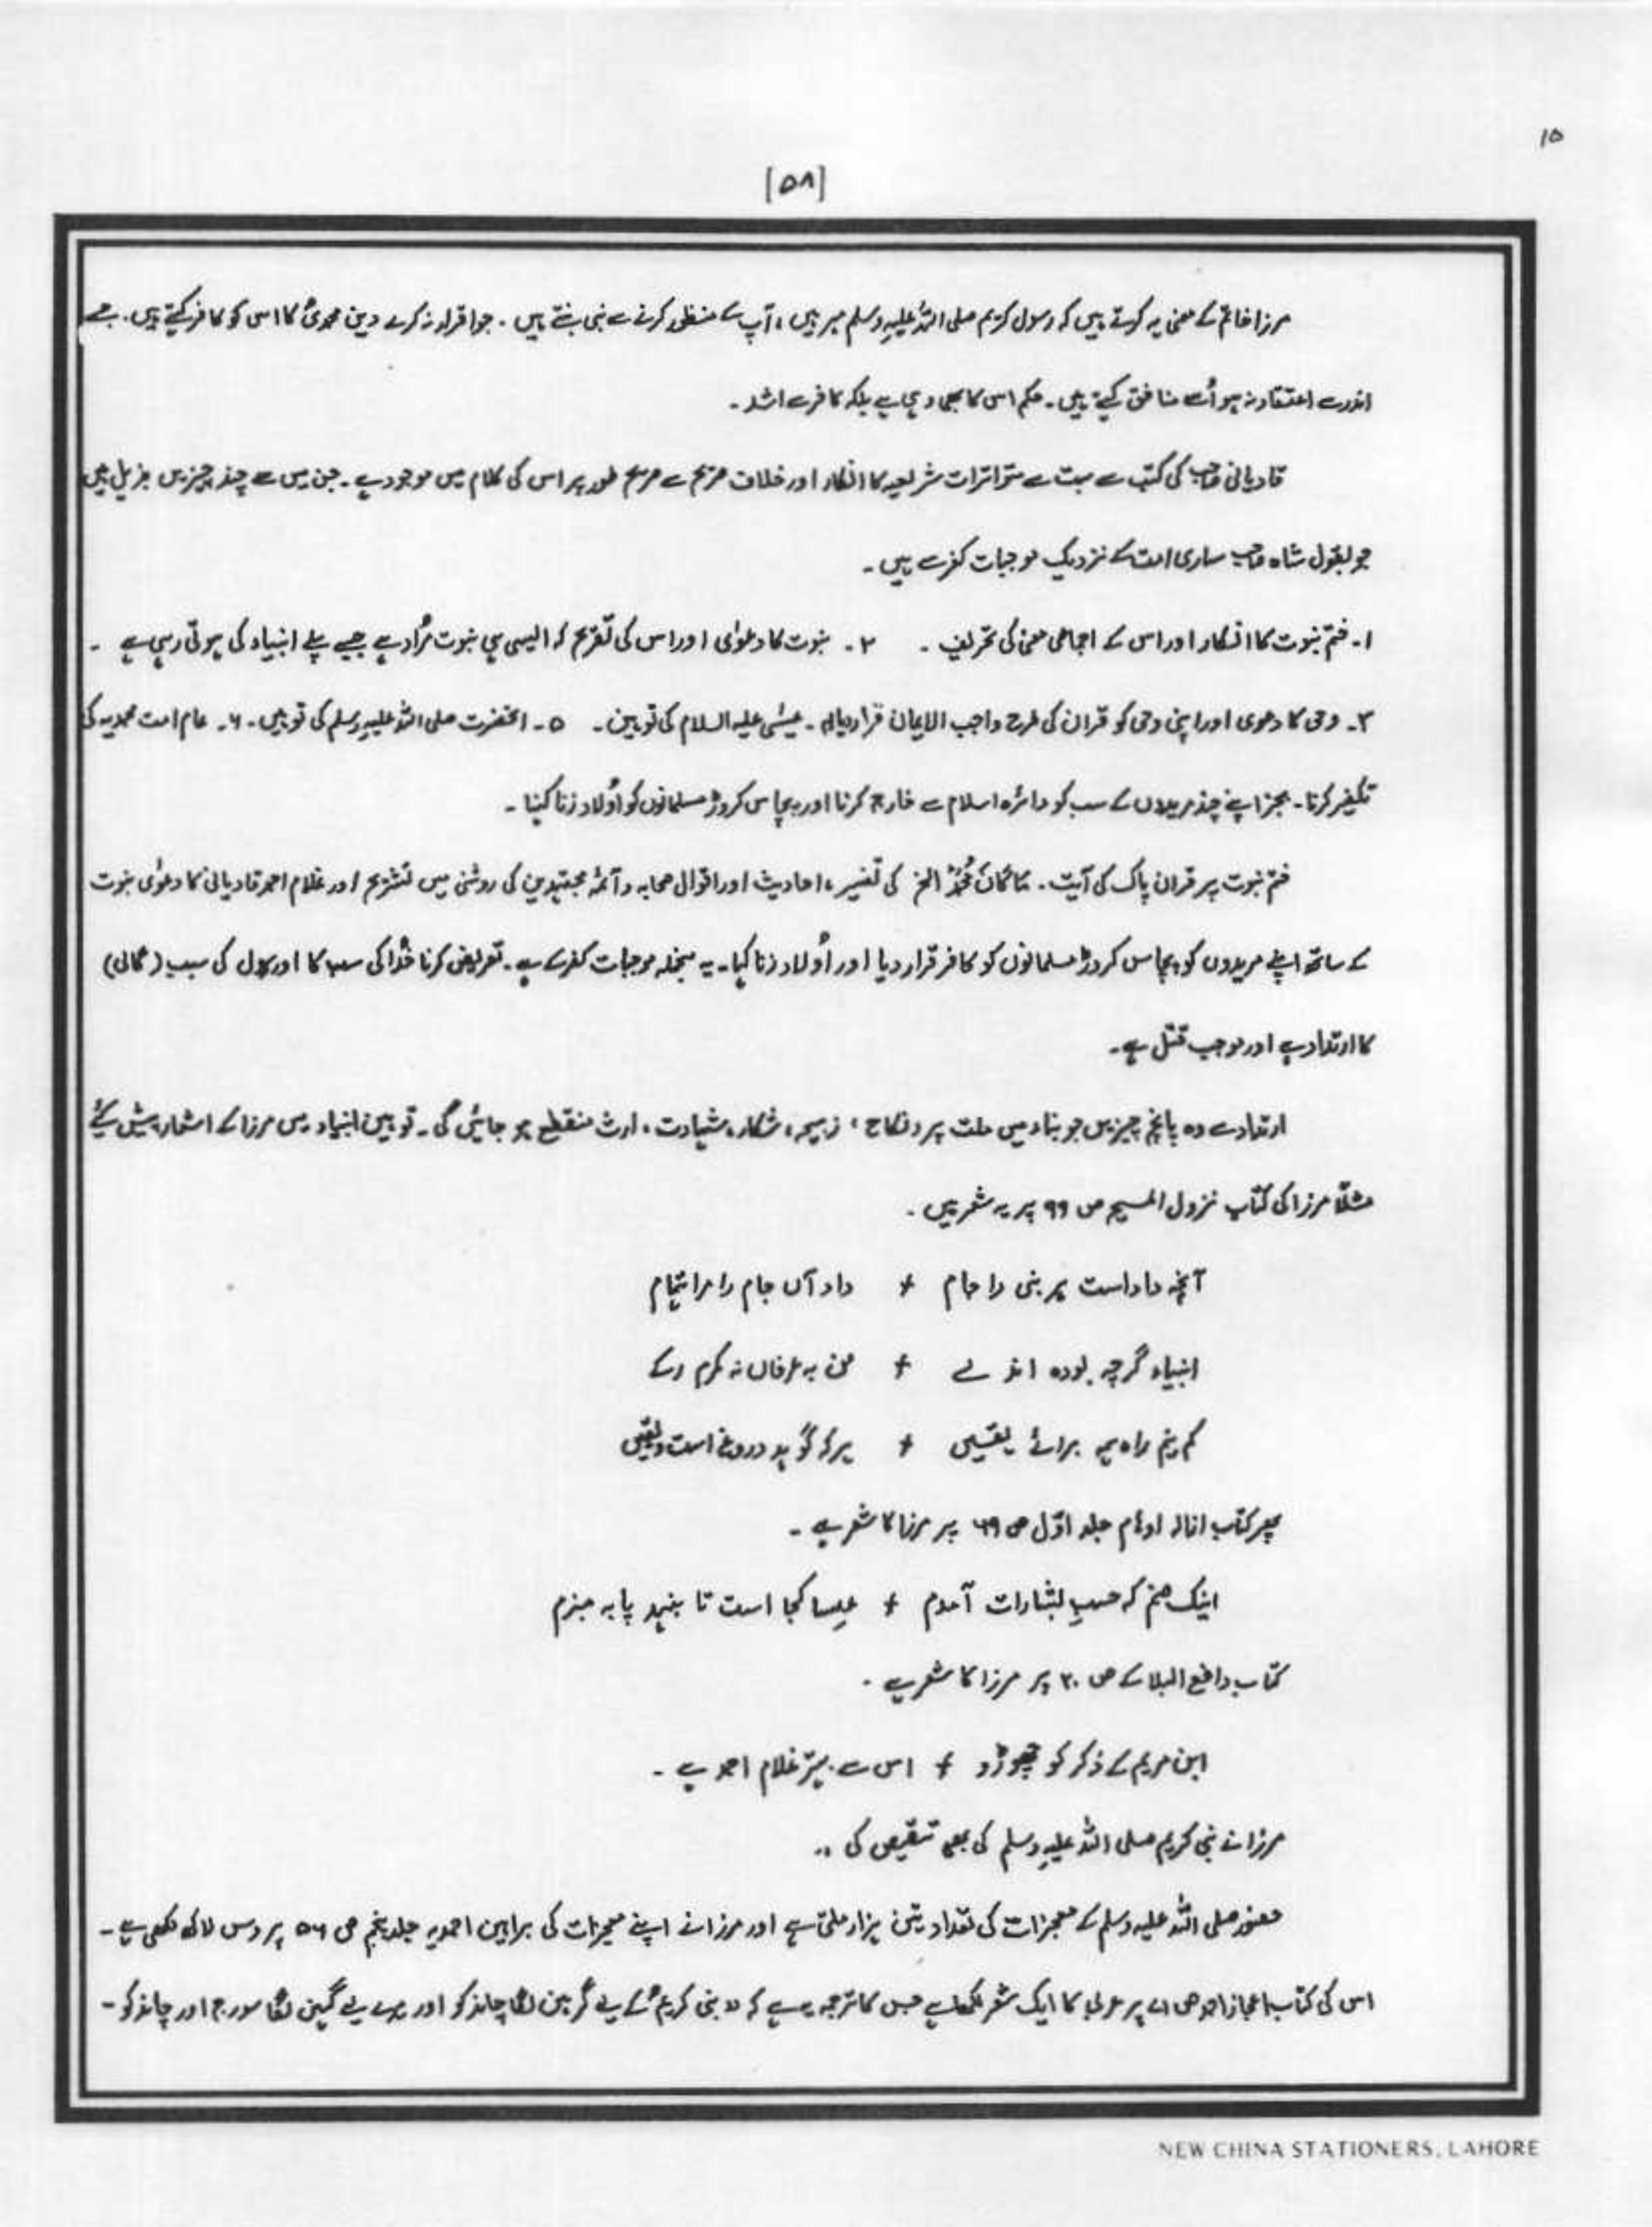 ۱۵
[۵۸]
مرزا خاتم کے معنی یہ کرتے ہیں کہ رسول کریم صلی اللہ علیہ وسلم مہر ہیں، آپ کے منظور کرنے سے نبی بنتے ہیں ۔ جو اقرار نہ کرے دین محمدیؐ کا اس کو کافر کہتے ہیں۔ جسے
اندر سے اعتقاد نہ ہو اُسے منافق کہتے ہیں۔ حکم اس کا بھی وہی ہے بلکہ کافر سے اشد ۔
قادیانی صاحب کی کتب سے بہت سے متواترات شرعیہ کا انکار اور خلاف صریح سے صریح طور پر اس کی کلام میں موجود ہے ۔ جن میں سے چند چیزیں بزیل ہیں
جو بقول شاہ صاحب ساری امت کے نزدیک موجبات کفر سے ہیں ۔
۱۔ ختم نبوت کا انکار اور اس کے اجماعی معنی کی تحریف ۔ ۲ ۔ نبوت کا دعوٰی اور اس کی تصریح کہ ایسی ہی نبوت مُراد ہے جیسے پہلے انبیاء کی ہوتی رہی ہے ۔
۳۔ وحی کا دعوی اور اپنی وحی کو قران کی طرح واجب الایمان قرار دیا۔ عیسٰی علیہ السلام کی توہین ۔ ۵ ۔ آنحضرت صلی اللہ علیہ وسلم کی توہین۔ ۶۔ عام امت محمدیہ کی
تکفیر کرنا ۔ بجز اپنے چند مریدوں کے سب کو دائرہ اسلام سے خارج کرنا اور پچاس کروڑ مسلمانوں کو اُولاد زنا کہنا ۔
ختم نبوت پر قران پاک کی آیت ۔ مَا كَانَ مُحَمَّدٌ الخ کی تفسیر، احادیث اور اقوال صحابہ و آئمہ مجتہدین کی روشنی میں تشریح اور غلام احمد قادیانی کا دعوٰی نبوت
کے ساتھ اپنے مریدوں کو پچاس کروڑ مسلمانوں کو کافر قرار دیا اور اُولاد زنا کہا ۔ یہ منجملہ موجبات کفر سے ہے ۔ تعریض کرنا خُدا کی سب کا اور رسول کی سبب (گالی)
کا ارتداد ہے اور موجب قتل ہے ۔
ارتداد سے وہ پانچ چیزیں جو بناء میں ملت پر، نکاح ، زبیحہ، شکار، شہادت ، ارث منقطع ہو جائیں گی ۔ توہین انبیاء میں مرزا کے اشعار پیش کئے
مثلاً مرزا کی کتاب نزول المسیح ص ۹۹ پر یہ شعر ہیں ۔
آنچہ داداست ہر نبی را جام + داد آں جام را مرا بتمام
انبیاء گرچہ بودہ اند بسے + من بہ عرفاں نہ کمرم زکسے
کم نیم زاں ہمہ برائے یقیں + ہر کہ گوید دروغ است و لعیں
پھر کتاب ازالہ اوہام جلد اوّل ص ۶۹ پر مرزا کا شعر ہے ۔
اینک منم کہ حسبِ بشارات آمدم + عیسا کجا است تا بنہد پا بہ منبرم
کتاب دافع البلا کے ص ۲۰ پر مرزا کا شعر ہے ۔
ابن مریم کے ذکر کو چھوڑو + اس سے بہتر غلام احمد ہے ۔
مرزا نے نبی کریم صلی اللہ علیہ وسلم کی بھی تنقیص کی ..
حضور صلی اللہ علیہ وسلم کے معجزات کی تعداد تین ہزار ملتی ہے اور مرزا نے اپنے معجزات کی براہین احمدیہ جلد پنجم ص ۵۶ پر دس لاکھ لکھی ہے ۔
اس کی کتاب اعجاز احمدی ص ۷۱ پر عربی کا ایک شعر لکھا ہے جس کا ترجمہ یہ ہے کہ " نبی کریم ؐ کے لیے گرہن لگا چاند کو اور میرے لیے گہن لگا سورج اور چاند کو ۔
NEW CHINA STATIONERS, LAHORE